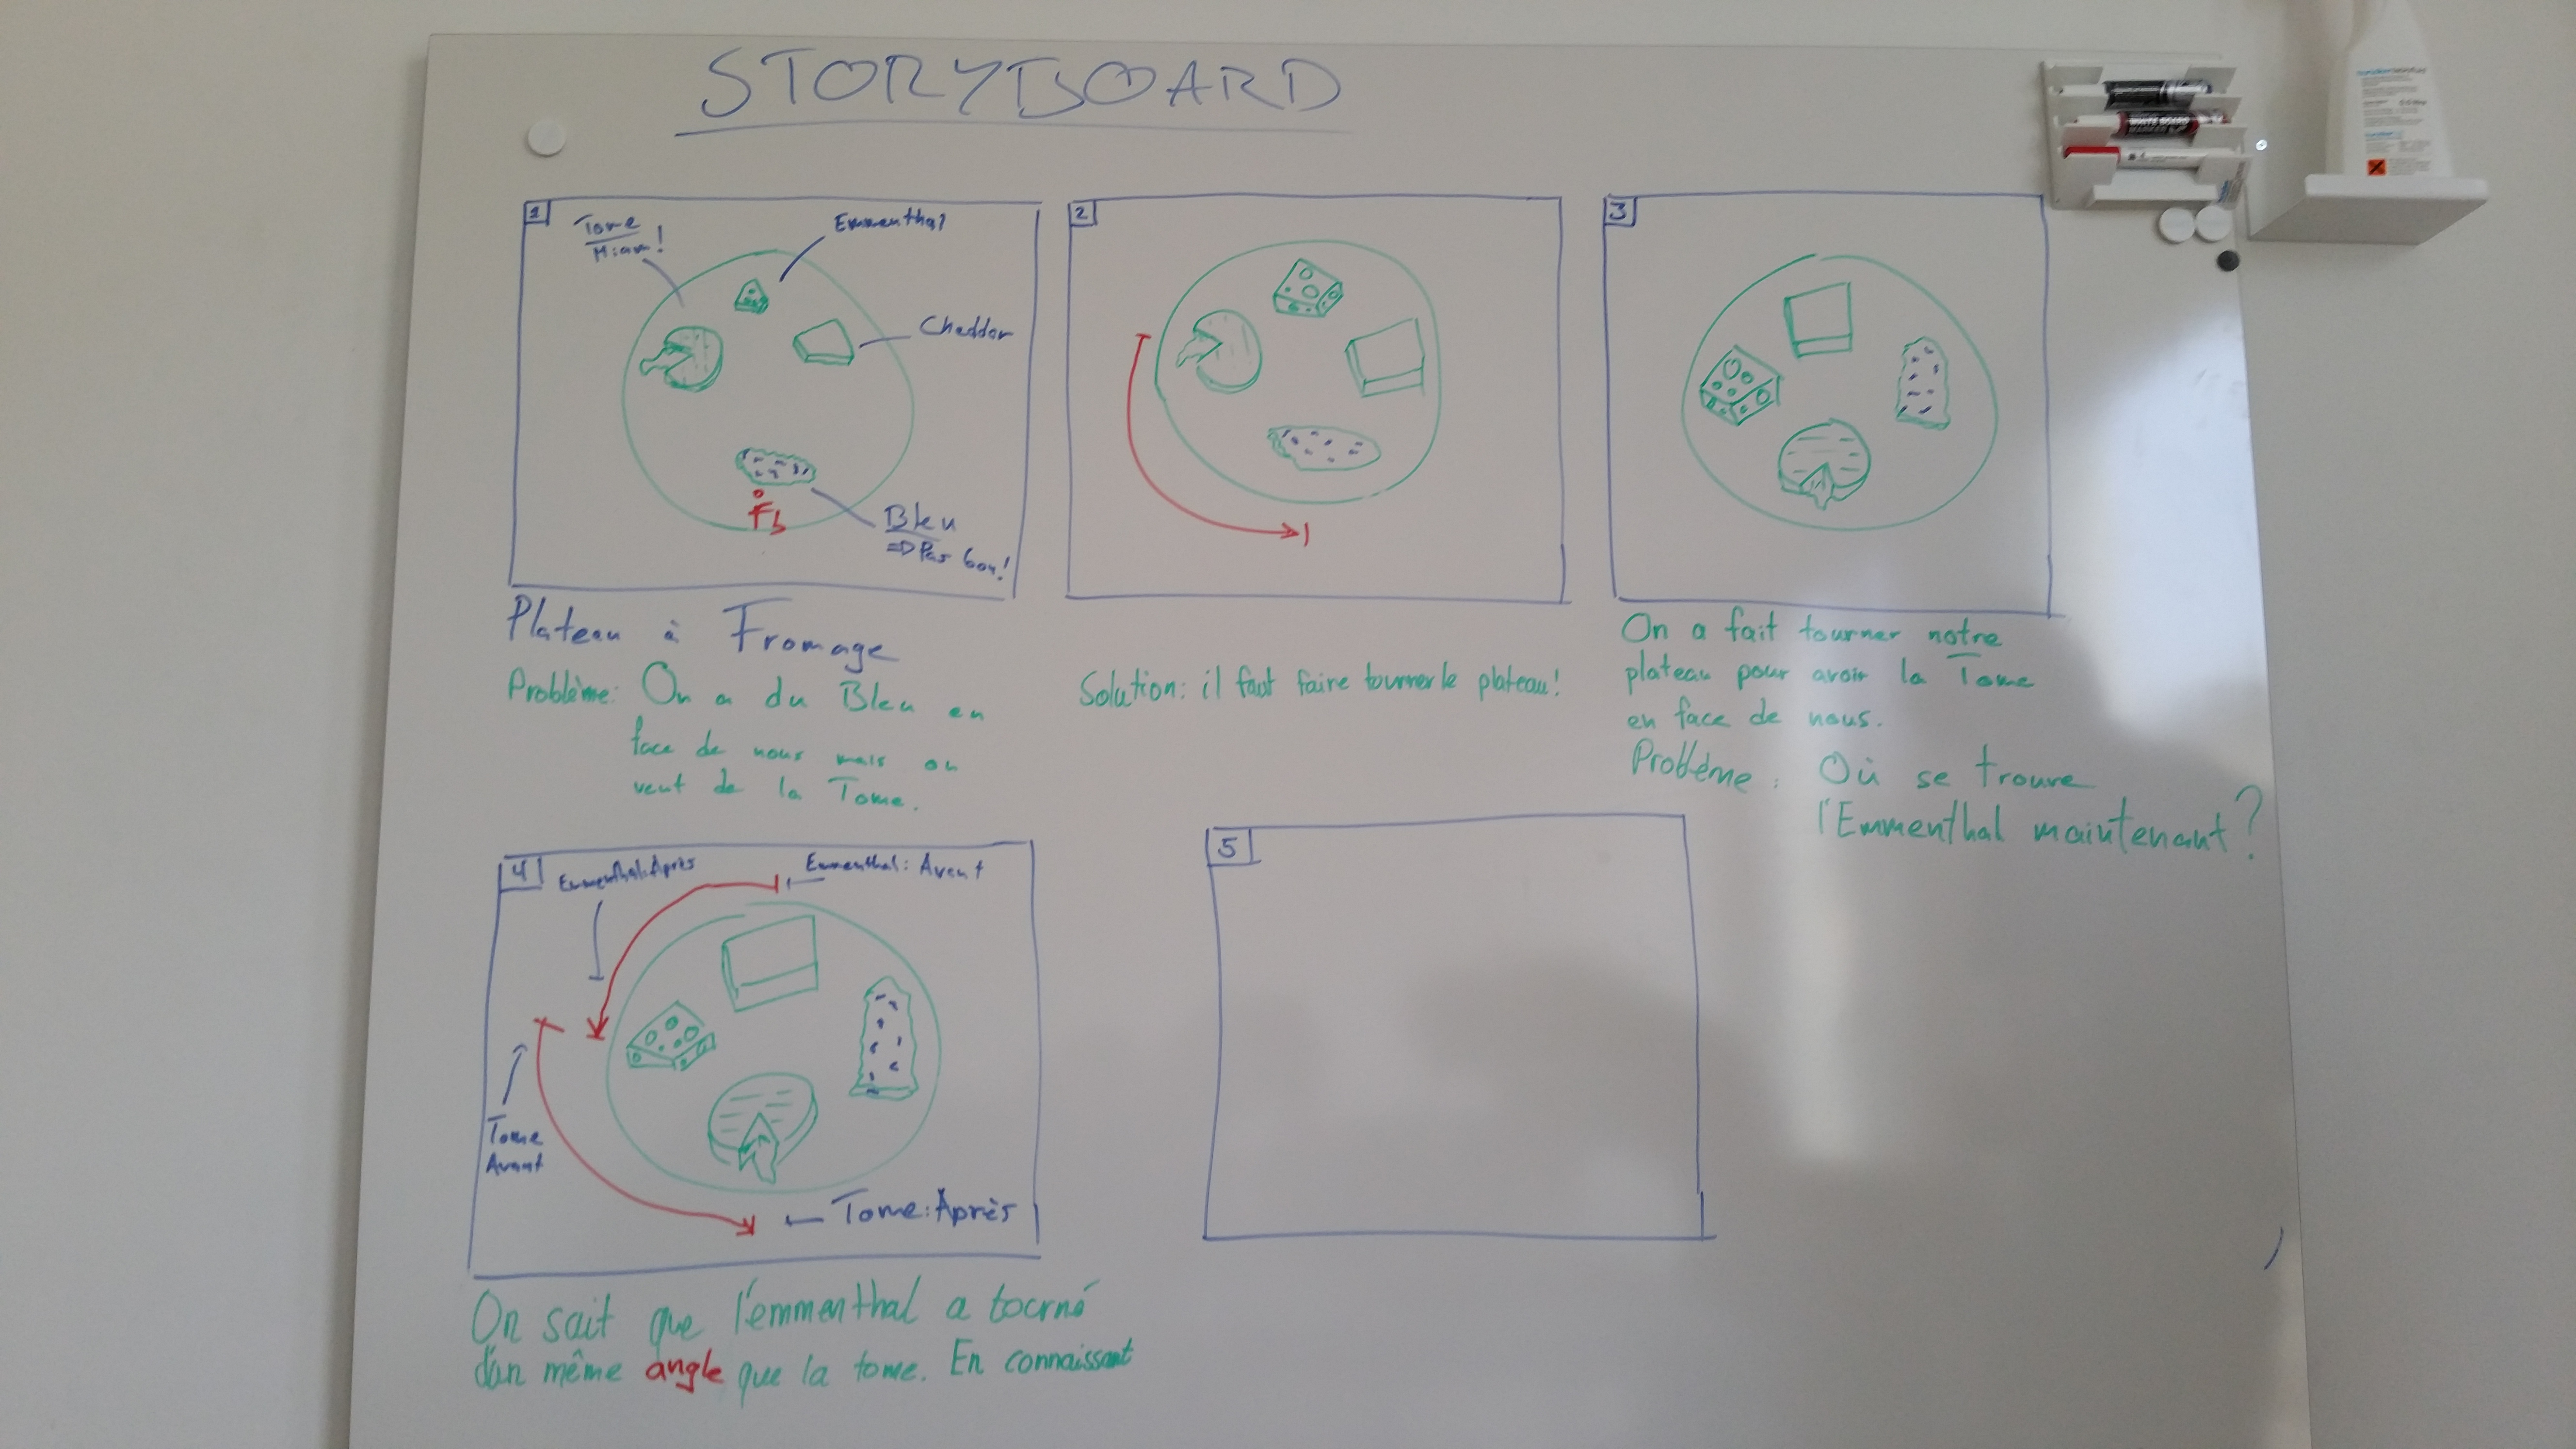 STORYBOARD
1
Tome
Miam!
Emmenthal
Cheddar
Bleu
=> Pas bon!
Plateau à Fromage
Problème: On a du Bleu en
face de nous mais on
veut de la Tome.
2
Solution: il faut faire tourner le plateau!
3
On a fait tourner notre
plateau pour avoir la Tome
en face de nous.
Problème: Où se trouve
l'Emmenthal maintenant?
4
Emmenthal: Après
Emmenthal: Avant
Tome
Avant
Tome: Après
On sait que l'emmenthal a tourné
d'un même angle que la tome. En connaissant
5
WHITE BOARD